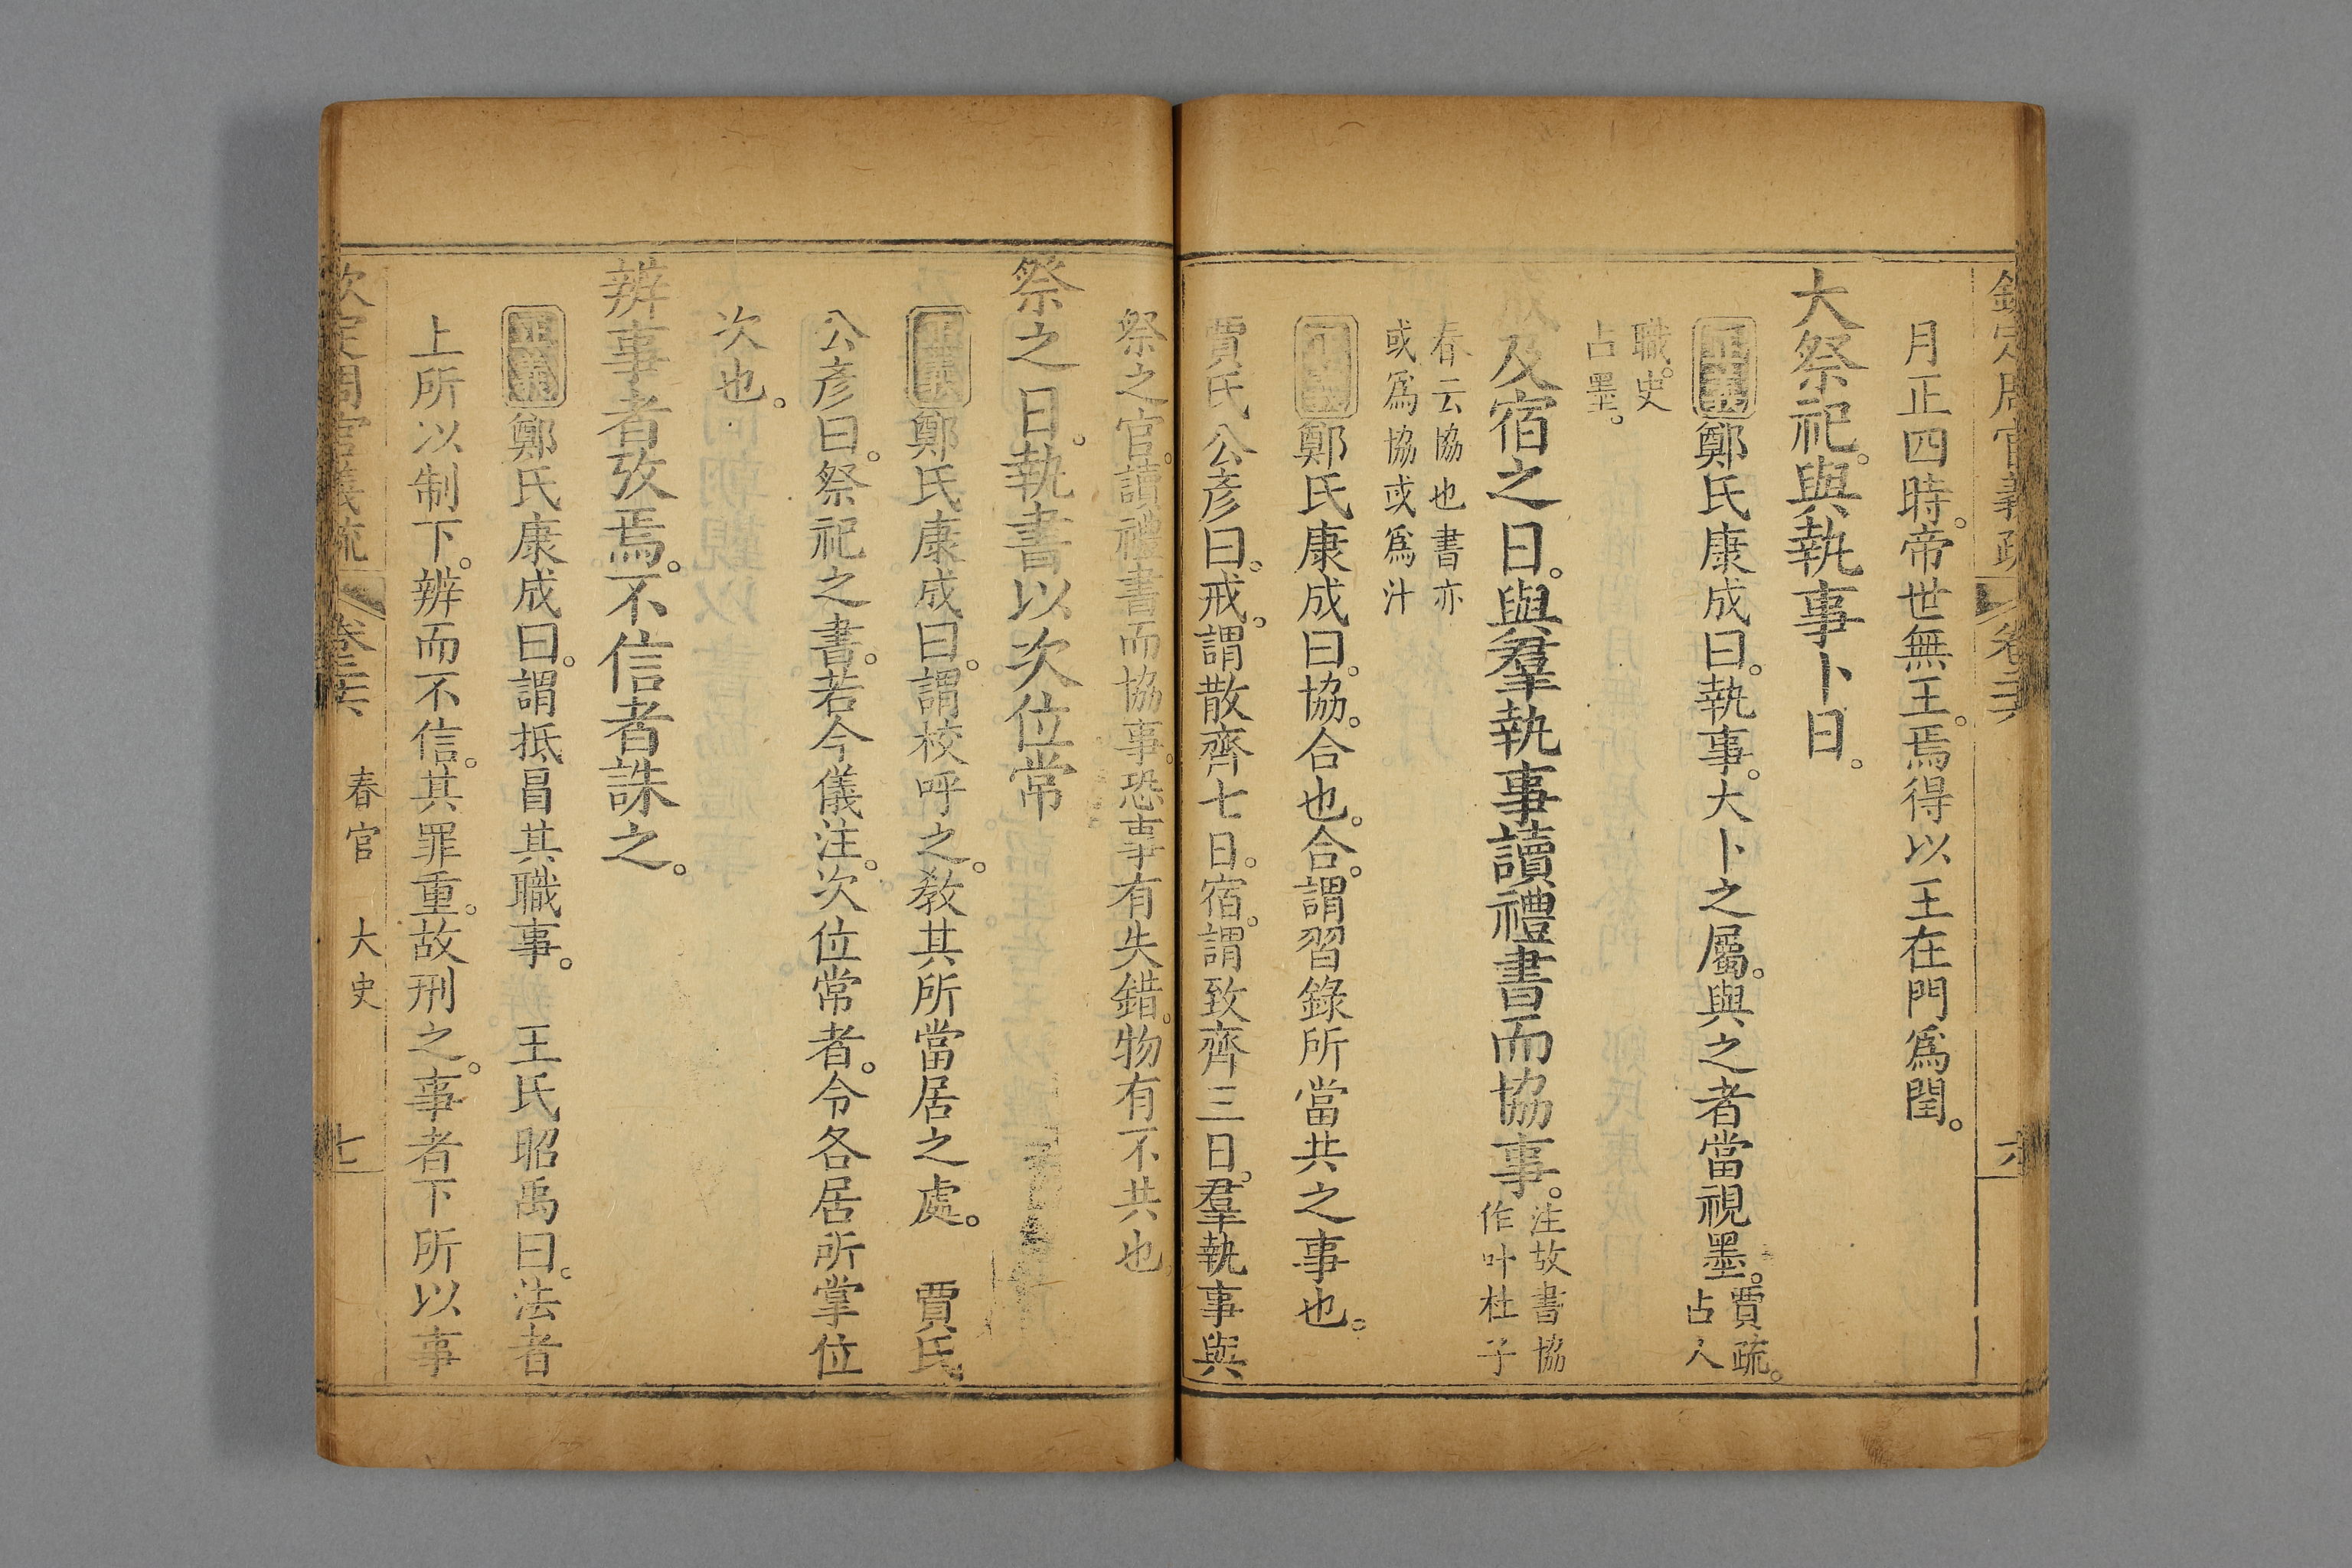 欽定周官義疏 卷二十六 六
月正四時。帝世無王。焉得以王在門爲閏。
大祭祀。與執事卜日。
正義鄭氏康成曰。執事。大卜之屬。與之者當視墨。賈疏。占人
職。史占墨。
及宿之日。與羣執事讀禮書而協事。注故書協作叶杜子
春云協也書亦或爲協或爲汁
正義鄭氏康成曰。協。合也。合。謂習錄所當共之事也。
賈氏公彦曰。戒。謂散齊七日。宿。謂致齊三日。羣執事與
祭之官。讀禮書而協事。恐事有失錯。物有不共也
祭之日。執書以次位常
正義鄭氏康成曰。謂校呼之。教其所當居之處。 賈氏
公彦曰。祭祀之書。若今儀注。次位常者。令各居所掌位
次也。
辨事者攷焉。不信者誅之。
正義鄭氏康成曰。謂抵冒其職事。 王氏昭禹曰。法者
上所以制下。辨而不信。其罪重。故刑之。事者下所以事
欽定周官義疏 卷二十六 春官 大史 七